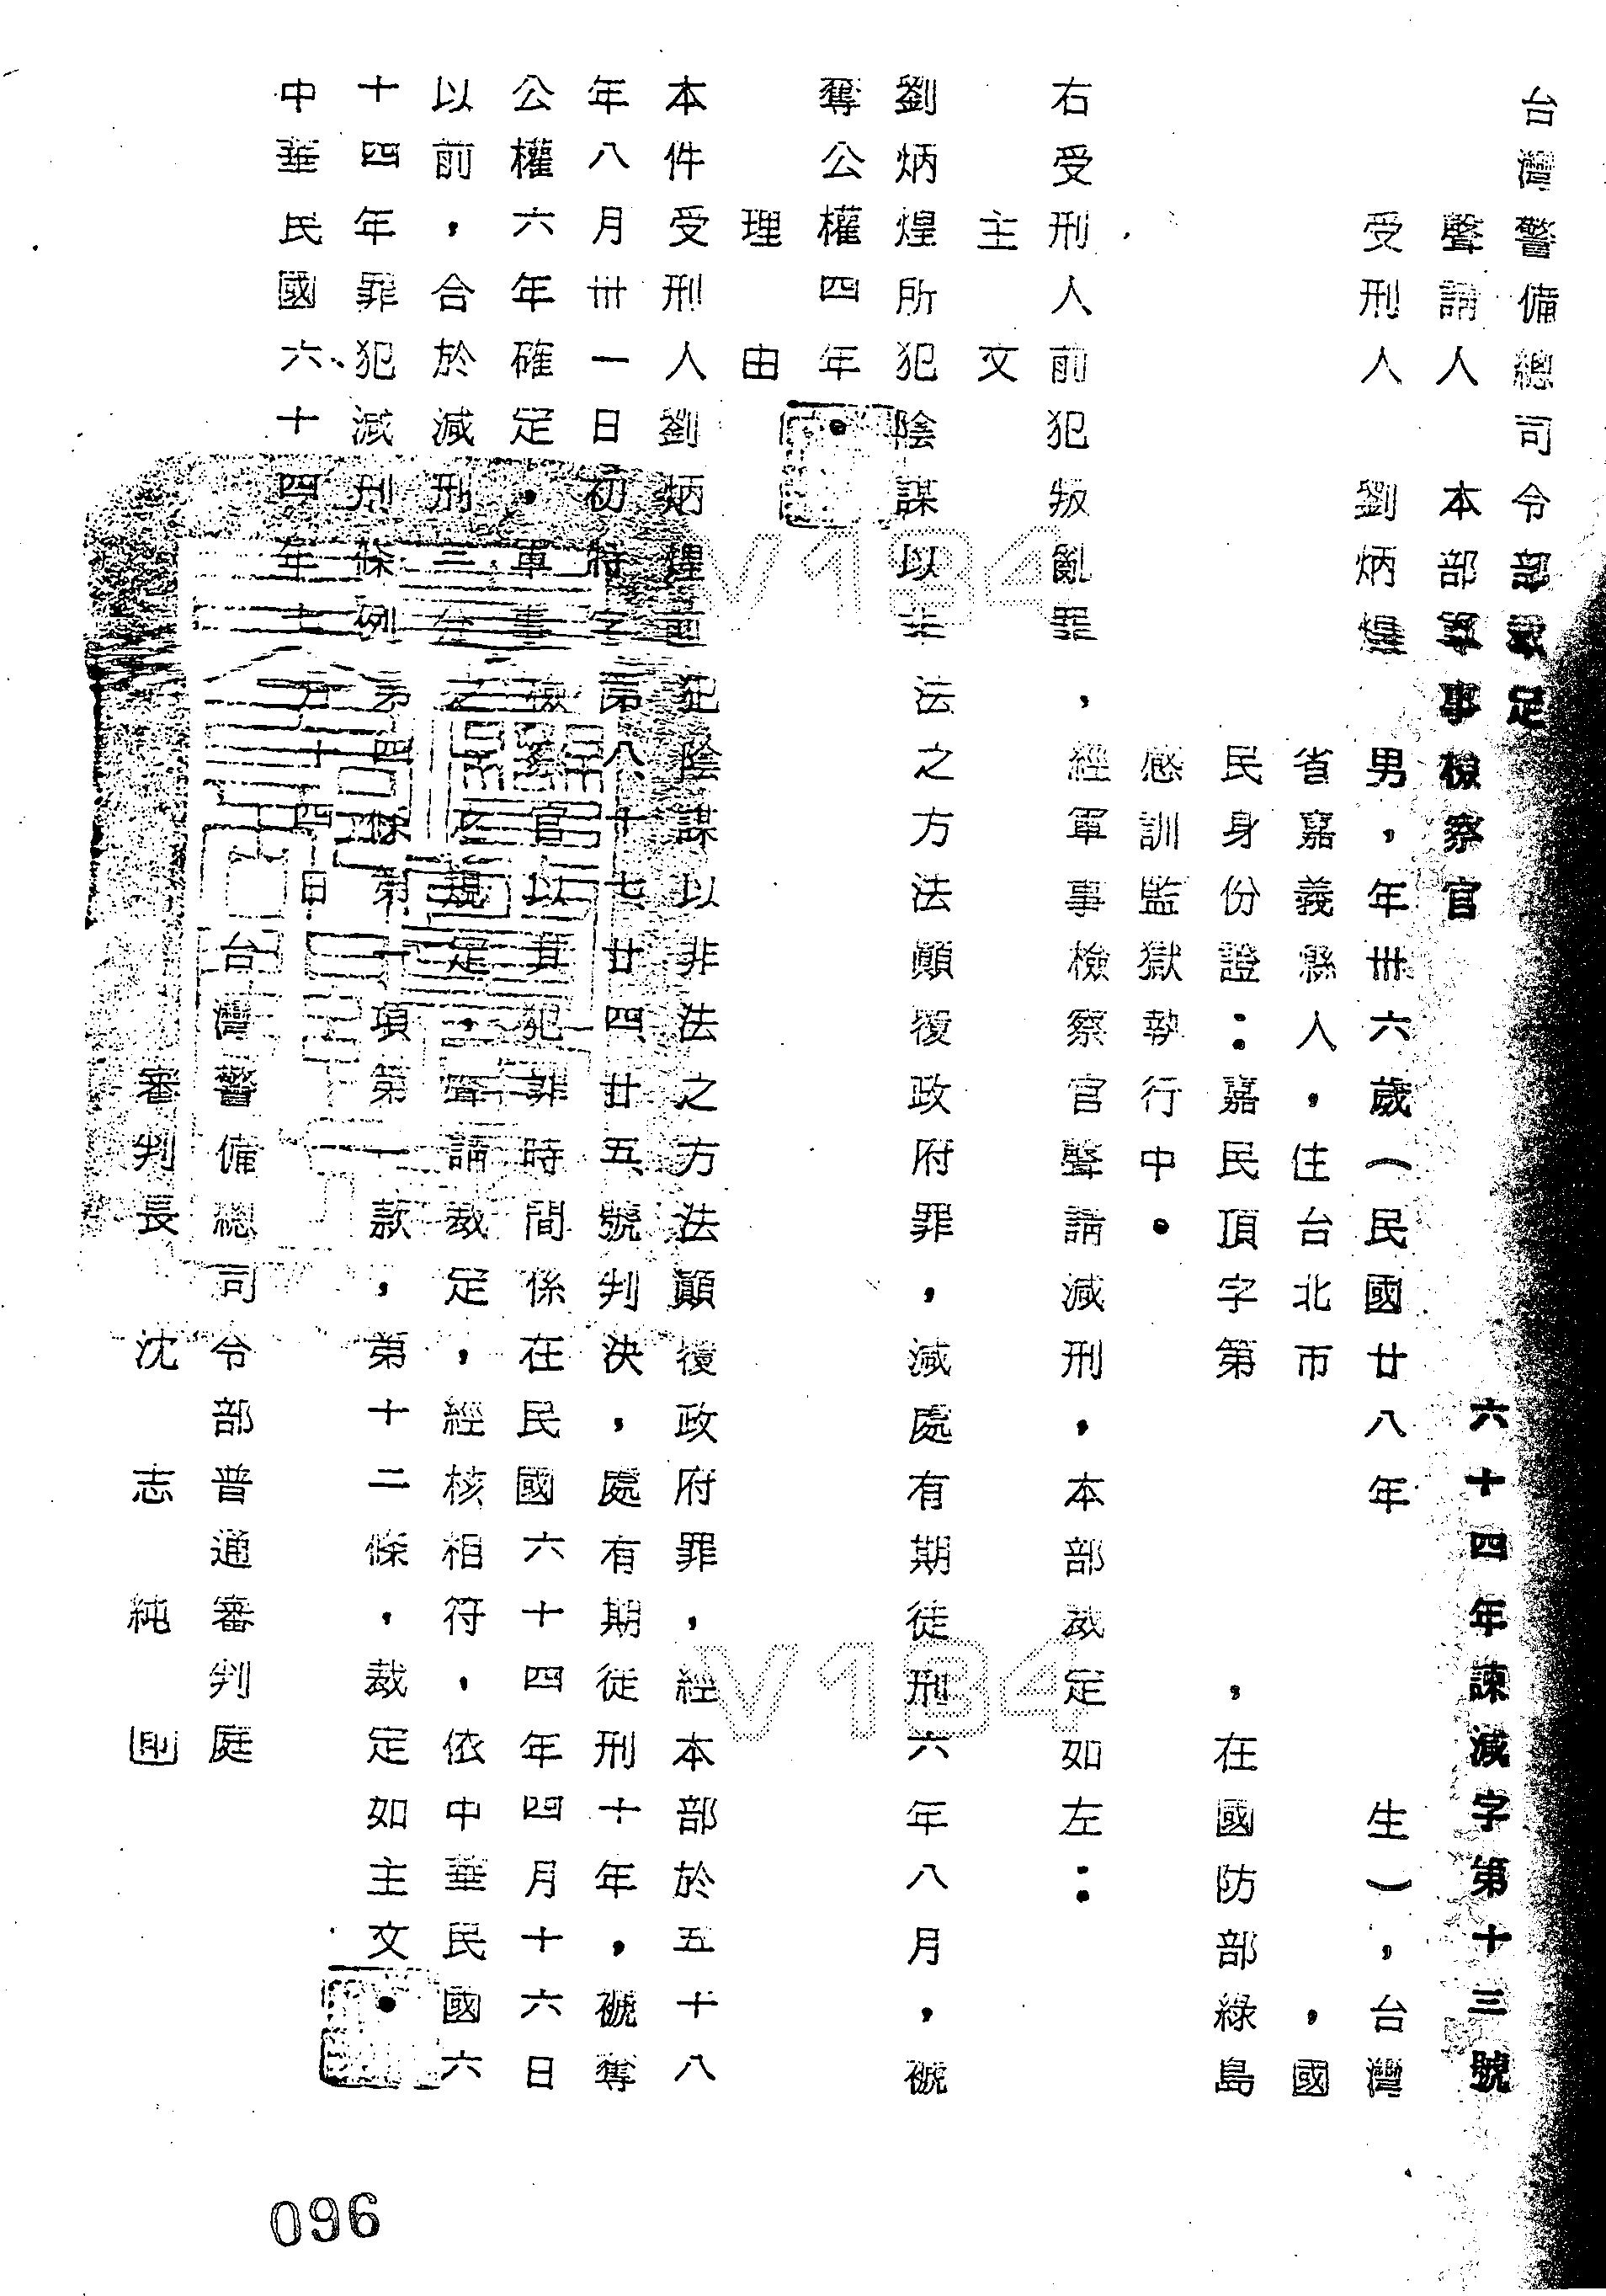 台灣警備總司令部裁定
六十四年諫減字第十三號
聲請人 本部軍事檢察官
受刑人 劉炳煌 男，年卅六歲（民國廿八年 生），台灣
省嘉義縣人，住台北市 ，國
民身份證：嘉民頂字第 ，在國防部綠島
感訓監獄執行中。
右受刑人前犯叛亂罪，經軍事檢察官聲請減刑，本部裁定如左：
主文
劉炳煌所犯陰謀以非法之方法顛覆政府罪，減處有期徒刑六年八月，褫
奪公權四年。
理由
本件受刑人劉炳煌前犯陰謀以非法之方法顛覆政府罪，經本部於五十八
年八月卅一日初特字第八、十七、廿四、廿五、號判決，處有期徒刑十年，褫奪
公權六年確定，軍事檢察官以其犯罪時間係在民國六十四年四月十六日
以前，合於減刑三分之一之規定，聲請裁定，經核相符，依中華民國六
十四年罪犯減刑條例第四條第一項第一款，第十二條，裁定如主文。
中華民國六十四年七月十四日
台灣警備總司令部普通審判庭
審判長 沈志純 印
096
V184
V184